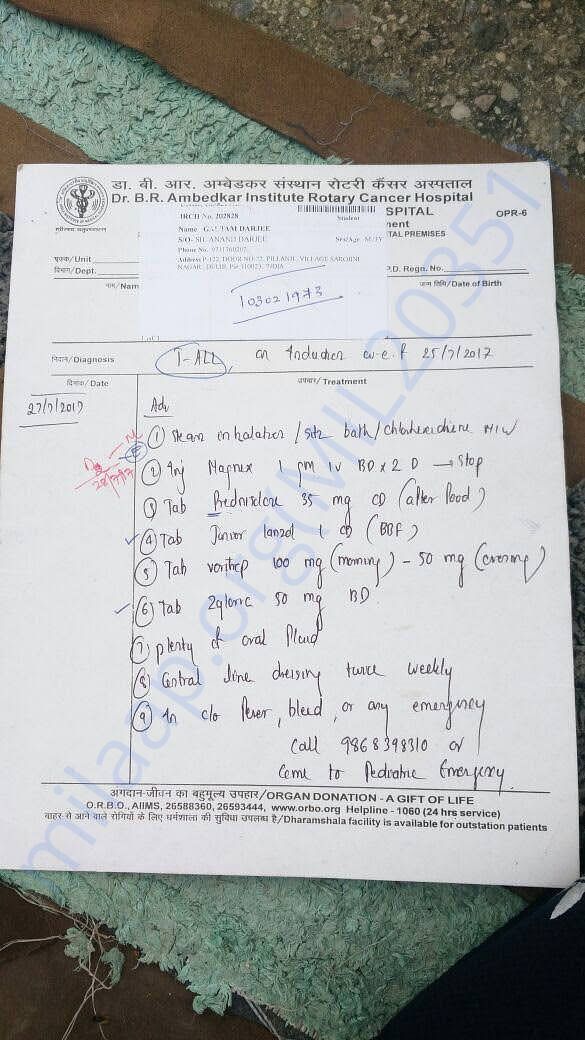 डा. बी. आर. अम्बेडकर संस्थान रोटरी कैंसर अस्पताल
Dr. B.R. Ambedkar Institute Rotary Cancer Hospital
SPITAL
OPR-6
IRCH No. 202828
Student
Name GAUTAM DARJEE
S/O- SH. ANAND DARJEE Sex/Age M/
TAL PREMISES
Phone No. 9717360207
Address P-122, DOOR NO-77, PILLANJI, VILLAGE SAROJINI
NAGAR, DELHI, Pin 110023, INDIA
एकक/Unit
विभाग/Dept.
P.D. Regn. No.
नाम/Nam
जन्म तिथि/Date of Birth
103021973
1 of 1
निदान/Diagnosis T-ALL, on Induction w.e.f 25/7/2017
दिनांक/Date उपचार/Treatment
27/7/2017 Adv
① Steam inhalation / Sitz bath / Chlorhexidiene M/W
28/7/17
② Inj Magnex 1 gm IV BD x 2 D → Stop
③ Tab Prednisolone 35 mg OD (after food)
④ Tab Junior lanzol 1 OD (BBF)
⑤ Tab vorihep 100 mg (morning) - 50 mg (evening)
⑥ Tab Zyloric 50 mg BD
⑦ plenty of oral fluid
⑧ Central line dressing twice weekly
⑨ In c/o fever, bleed, or any emergency
Call 9868398310 or
Come to Pediatric Emergency.
अंगदान-जीवन का बहुमूल्य उपहार/ORGAN DONATION - A GIFT OF LIFE
O.R.B.O., AIIMS, 26588360, 26593444, www.orbo.org Helpline - 1060 (24 hrs service)
बाहर से आने वाले रोगियों के लिए धर्मशाला की सुविधा उपलब्ध है/Dharamshala facility is available for outstation patients
milaap.org(MIL203351)